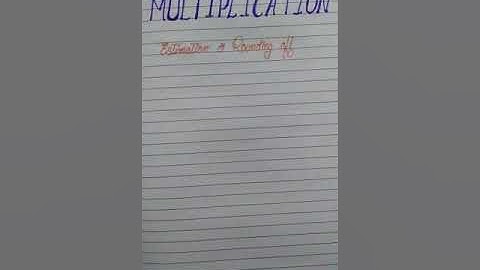 MULTIPLICATION
Estimation & Rounding off